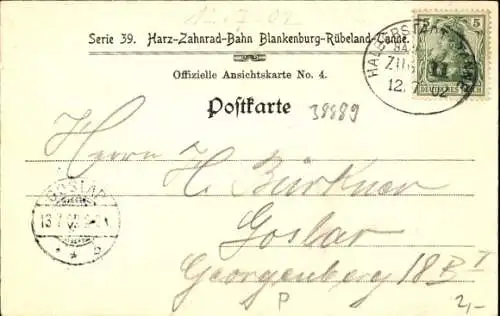 12.7.02
Serie 39. Harz-Zahnrad-Bahn Blankenburg-Rübeland-Tanne.
Offizielle Ansichtskarte No. 4.
Postkarte
38889
5 5
DEUTSCHES REICH
HALBERSTADT
ZUG 11
12.7.02
Herrn H. Bürkner
Goslar
Georgenberg 18 B I
GOSLAR
13.7.02
P
2,-